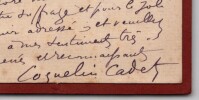 suffrage et pour le joli
adresse, et veuillez
à mes sentiments très
et reconnaissants
Coquelin Cadet